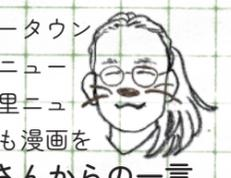 ータウン
ニュー
里ニュ
も漫画を
さんからの一言